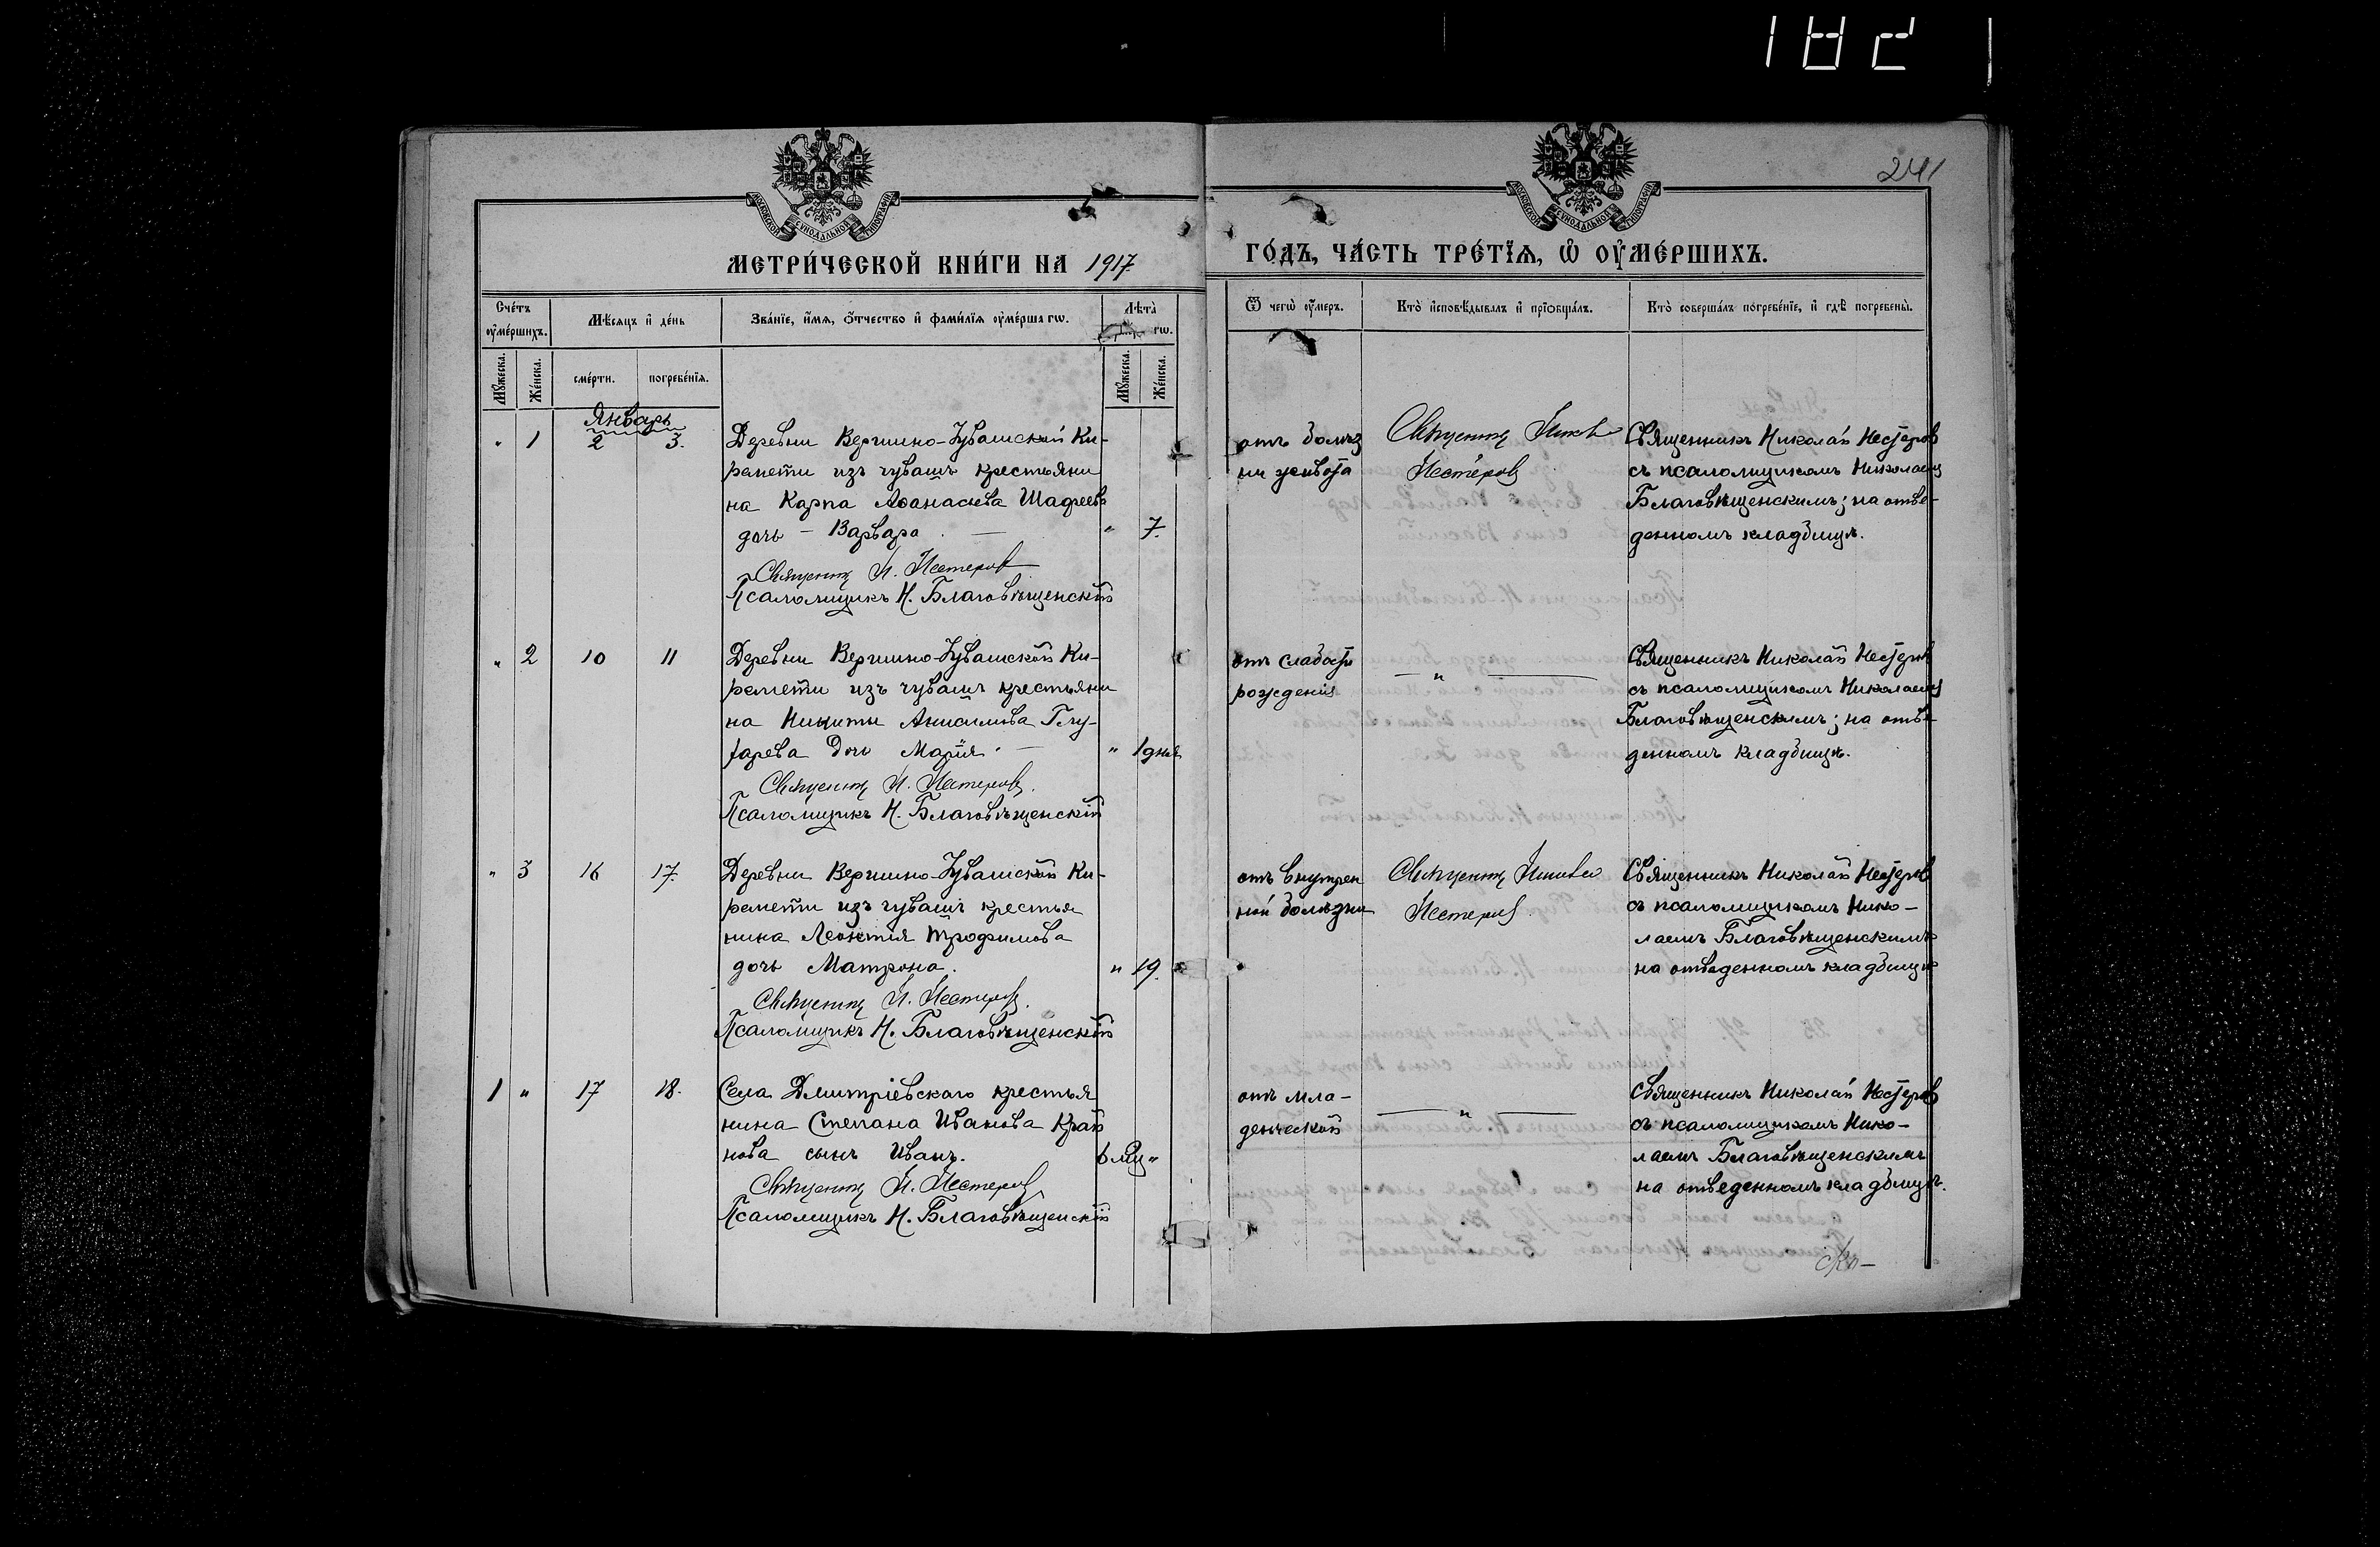 182
241
МОСКОВСКОЙ СѴНОДАЛЬНОЙ ТИПОГРАФІИ
МОСКОВСКОЙ СѴНОДАЛЬНОЙ ТИПОГРАФІИ
МЕТРИ́ЧЕСКОЙ КНИ́ГИ НА 1917.
ГО́ДЪ, ЧА́СТЬ ТРЕ́ТЇѦ, Ѡ҆ ОУ҆МЕ́РШИХЪ.
Сче́тъ оу҆ме́ршихъ.
Мѣ́сѧцъ и҆ де́нь
Зва́нїе, и҆́мѧ, ѻ҆́тчество и҆ фами́лїѧ оу҆ме́рша гѡ.
Лѣ́та гѡ.
Мꙋ́жеска.
Же́нска.
сме́рти.
погребе́нїѧ.
Мꙋ́жеска.
Же́нска.
Ѿ чегѡ̀ оу҆́меръ.
Кто̀ и҆сповѣ́дывалъ и҆ прїѡбща́лъ.
Кто̀ соверша́лъ погребе́нїе, и҆ гдѣ̀ погребены̀.
Январь
" 1 2 3.
Деревни Вершино-Чувашской Ки-
ремети изъ чувашъ крестьяни
на Карпа Аѳанасьева Шадреева
дочь - Варвара —
" 7.
Священникъ Н. Нестеровъ
Псаломщикъ Н. Благовѣщенскій
отъ болѣз
ни живота
Священникъ
Нестеровъ
Священникъ Николай Нестеровъ
съ псаломщикомъ Николаемъ
Благовѣщенскимъ; на отве-
денномъ кладбищѣ.
" 2 10 11
Деревни Вершино-Чувашской Ки-
ремети изъ чувашъ крестьяни
на Никиты Анисимова Глу-
харева дочь Марія. —
" 1 дня
Священникъ Н. Нестеровъ.
Псаломщикъ Н. Благовѣщенскій
отъ слабости
рожденія
— " —
Священникъ Николай Нестеровъ
съ псаломщикомъ Николаемъ
Благовѣщенскимъ; на отве-
денномъ кладбищѣ.
" 3 16 17.
Деревни Вершино-Чувашской Ки-
ремети изъ чувашъ крестья
нина Леонтія Трофимова
дочь Матрона.
" 19.
Священникъ Н. Нестеровъ.
Псаломщикъ Н. Благовѣщенскій
отъ внутрен
ней болѣзни
Священникъ
Нестеровъ
Священникъ Николай Нестеровъ
съ псаломщикомъ Нико-
лаемъ Благовѣщенскимъ
на отведенномъ кладбищѣ
1 " 17 18.
Села Дмитріевскаго крестья
нина Степана Иванова Край
нова сынъ Иванъ.
6 "
Священникъ Н. Нестеровъ
Псаломщикъ Н. Благовѣщенскій
отъ мла-
денческой
— " —
Священникъ Николай Нестеровъ
съ псаломщикомъ Нико-
лаемъ Благовѣщенскимъ
на отведенномъ кладбищѣ.